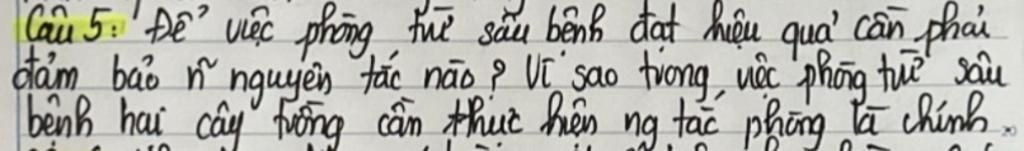 Câu 5: Để việc phòng trừ sâu bệnh đạt hiệu quả cần phải
đảm bảo n~ nguyên tắc nào? Vì sao trong việc phòng trừ sâu
bệnh hại cây trồng cần thực hiện ng tắc phòng là chính